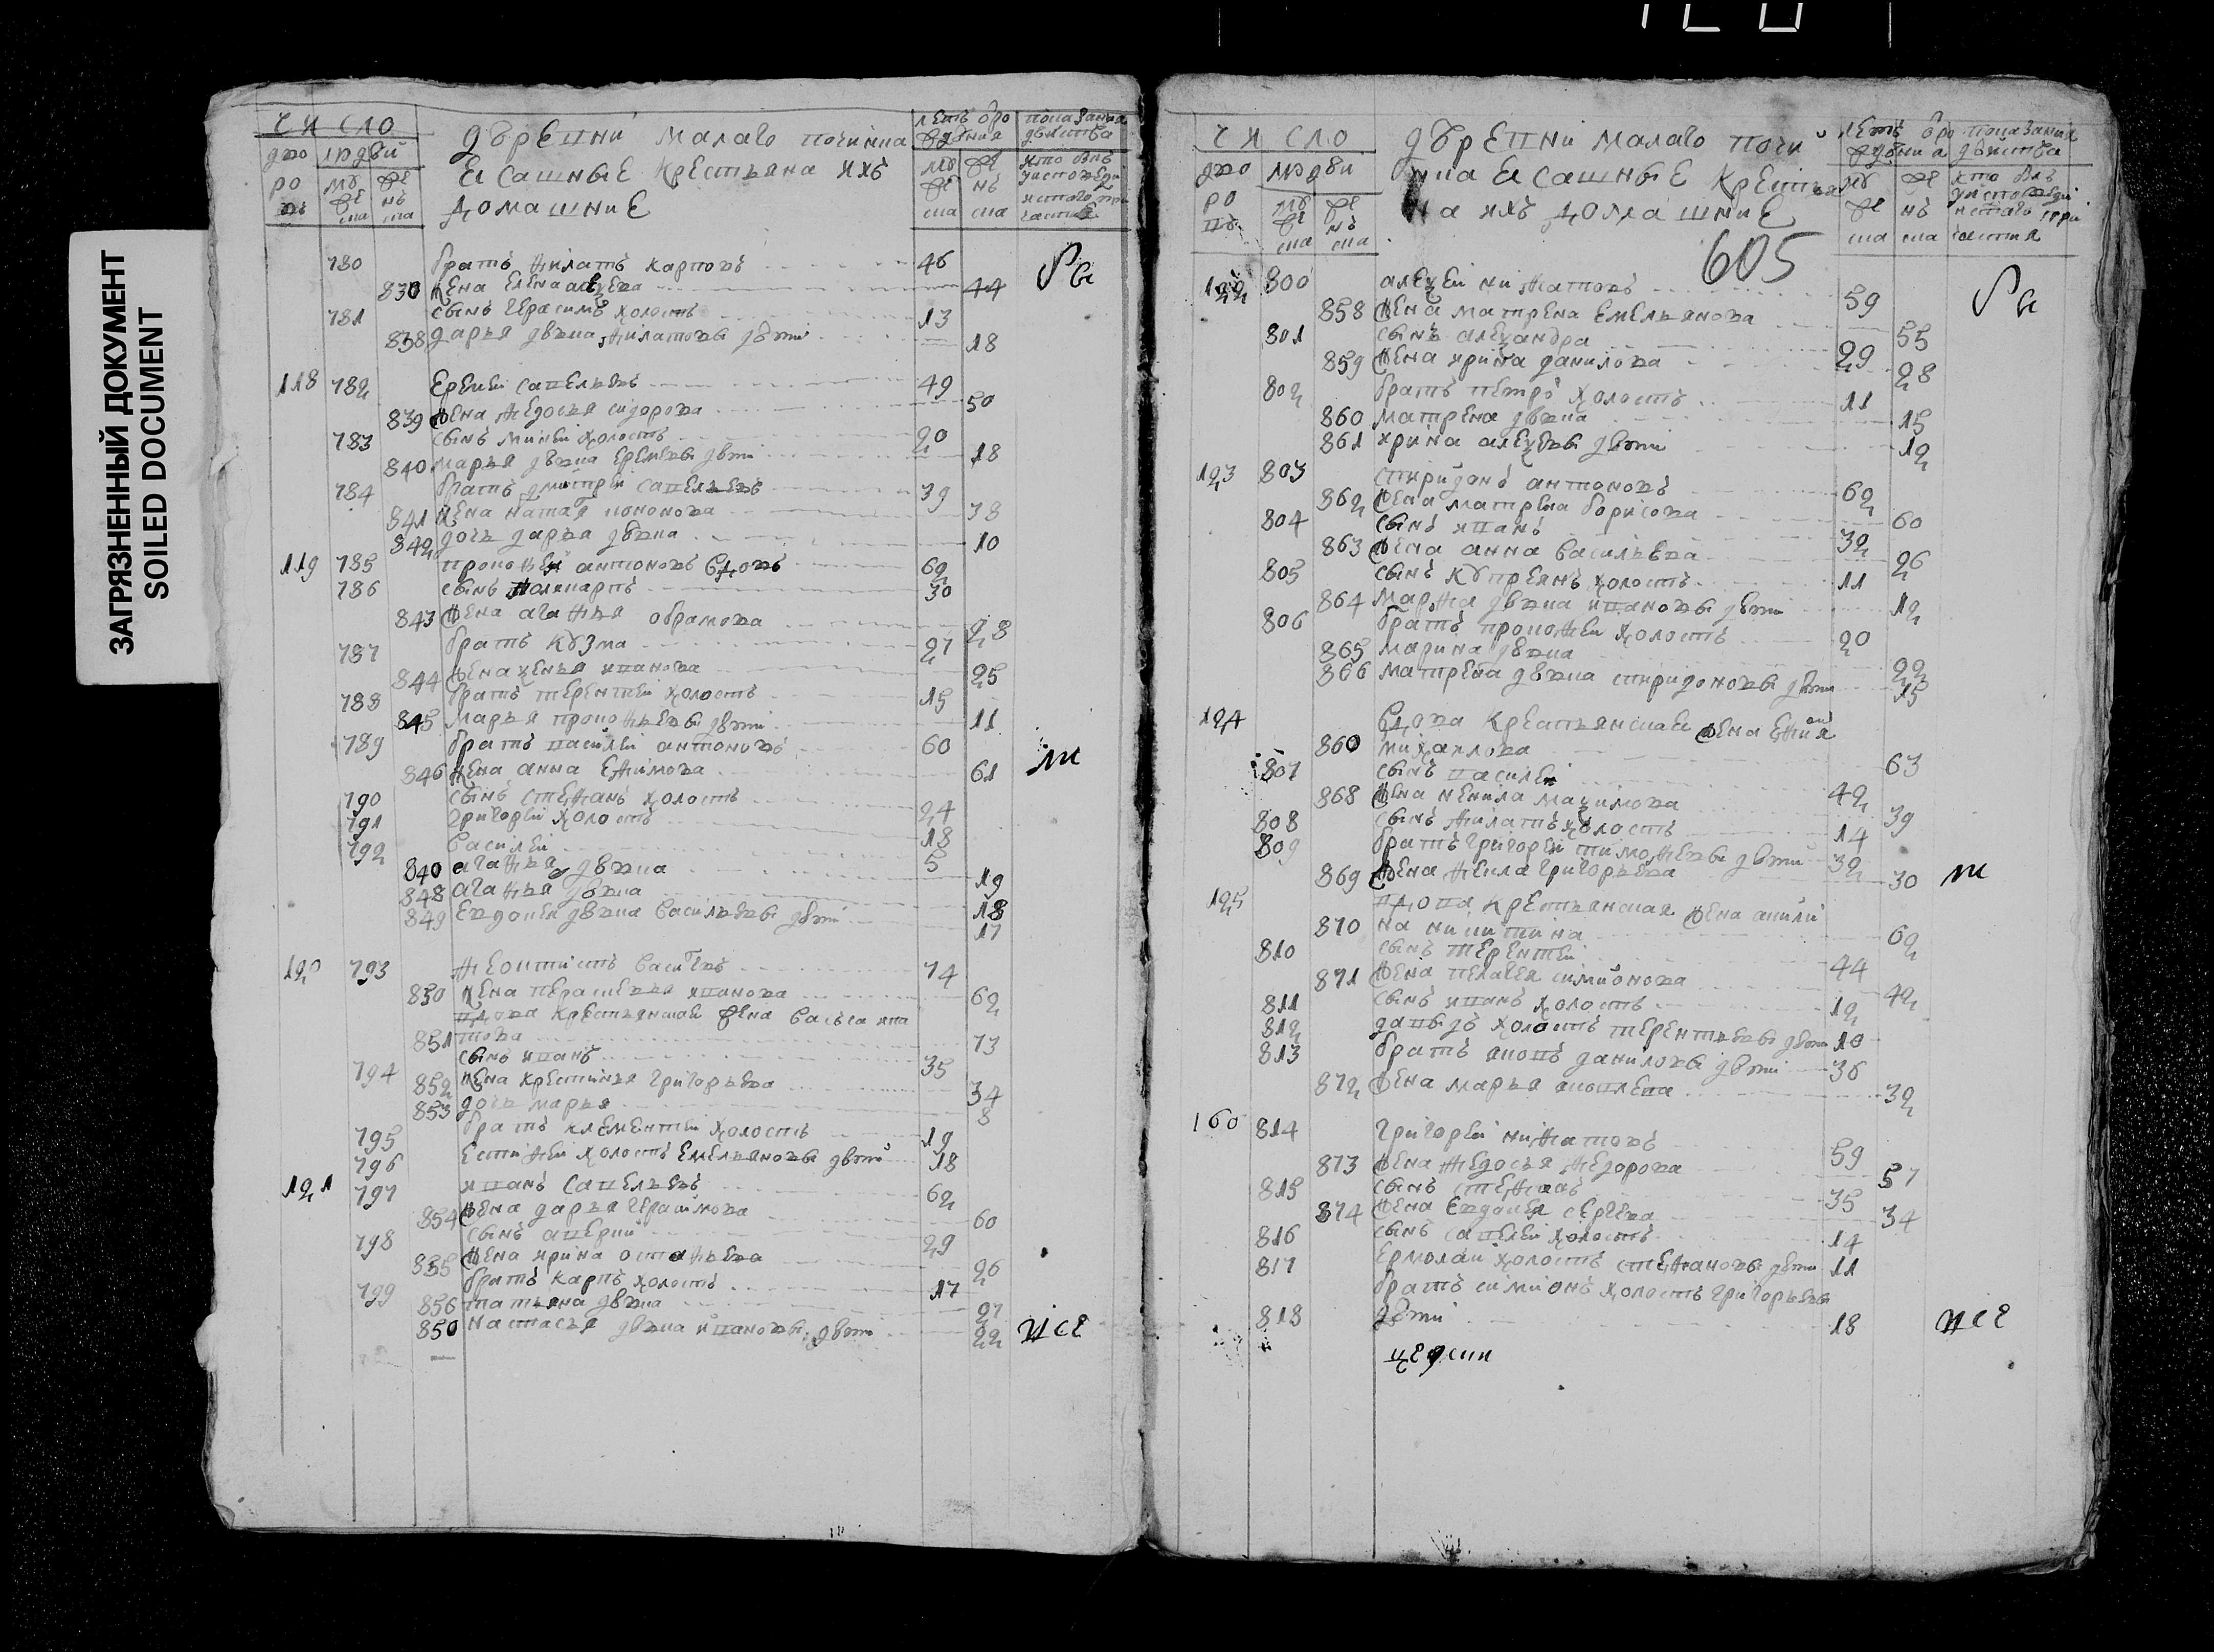 ЗАГРЯЗНЕННЫЙ ДОКУМЕНТ
SOILED DOCUMENT
число
дворовъ людей
мужеска женска
деревни малаго починка
ясашные крестьяна ихъ
домашние
лета от рождения
мужеска женска
показание действа
кто былъ у исповеди
и стаго причастия
780 братъ филатъ карповъ 46
830 жена елена алеѯева 44
781 сынъ герасимъ холостъ 13
838 дарья девка филатовы дети 18
118 782 еремей савельевъ 49
839 жена федосья сидорова 50
783 сынъ миней холостъ 20
840 марья девка еремеевы дети 18
784 братъ дмитрей савельевъ 39
841 жена наталья кононова 38
842 дочь дарья девка 10
119 785 прокофей антоновъ вдовъ 62
786 сынъ поликарпъ 30
843 жена агафья обрамова 28
787 братъ кузма 27
844 жена ѯенья иванова 25
788 братъ терентей холостъ 15
845 марья прокофьевы дети 11
789 братъ василей антоновъ 60
846 жена анна ефимова 61
790 сынъ стефанъ холостъ 24
791 григорей холостъ 18
792 василей 5
840 агафья девка 19
848 агафья девка 18
849 евдокея девка васильевы дети 17
120 793 феоктистъ васильевъ 74
850 жена перасковья иванова 62
вдова крестьянская жена васса ипа
851 това 73
794 сынъ иванъ 35
852 жена крестинья григорьева 34
853 дочь марья 8
795 братъ клементей холостъ 19
796 естифей холостъ емельяновы дети 18
121 797 иванъ савельевъ 62
854 жена дарья герасимова 60
798 сынъ аверкий 29
855 жена ирина остафьева 26
799 братъ карпъ холостъ 17
856 татьяна девка 27
850 настасья девка ивановы дети 22
все
число
дворовъ людей
мужеска женска
деревни малаго почи
нка ясашные крестья
на ихъ домашние
605
лета от рождения
мужеска женска
показание действа
кто былъ у исповеди
и стаго причастия
122 800 алеѯей нифатовъ 59
858 жена матрена емельянова 55
801 сынъ алеѯандра 29
859 жена ирина данилова 28
802 братъ петръ холостъ 11
860 матрена девка 15
861 ирина алеѯеевы дети 12
123 803 спиридонъ антоновъ 62
862 жена матрена борисова 60
804 сынъ иванъ 32
863 жена анна васильева 26
805 сынъ куприянъ холостъ 11
864 марфа девка ивановы дети 12
806 братъ прокофей холостъ 20
865 марина девка 22
866 матрена девка спиридоновы дети 15
124 вдова крестьянская жена
860 михаилова 63
807 сынъ василей 42
868 жена ненила маѯимова 39
808 сынъ филатъ холостъ 14
809 братъ григорей тимофеевы дети 32
869 жена фекла григорьева 30
125 вдова крестьянская жена акили
870 на никитина 62
810 сынъ терентей 44
871 жена пелагея симионова 42
811 сынъ иванъ холостъ 12
812 давыдъ холостъ терентьевы дети 10
813 братъ яковъ даниловы дети 36
872 жена марья яковлева 32
160 814 григорей нифатовъ 59
873 жена федосья федорова 57
815 сынъ стефанъ 35
874 жена евдокея сергева 34
816 сынъ савелей холостъ 14
817 ермолай холостъ стефановы дети 11
братъ симионъ холостъ григорьевы
818 дети 18
все